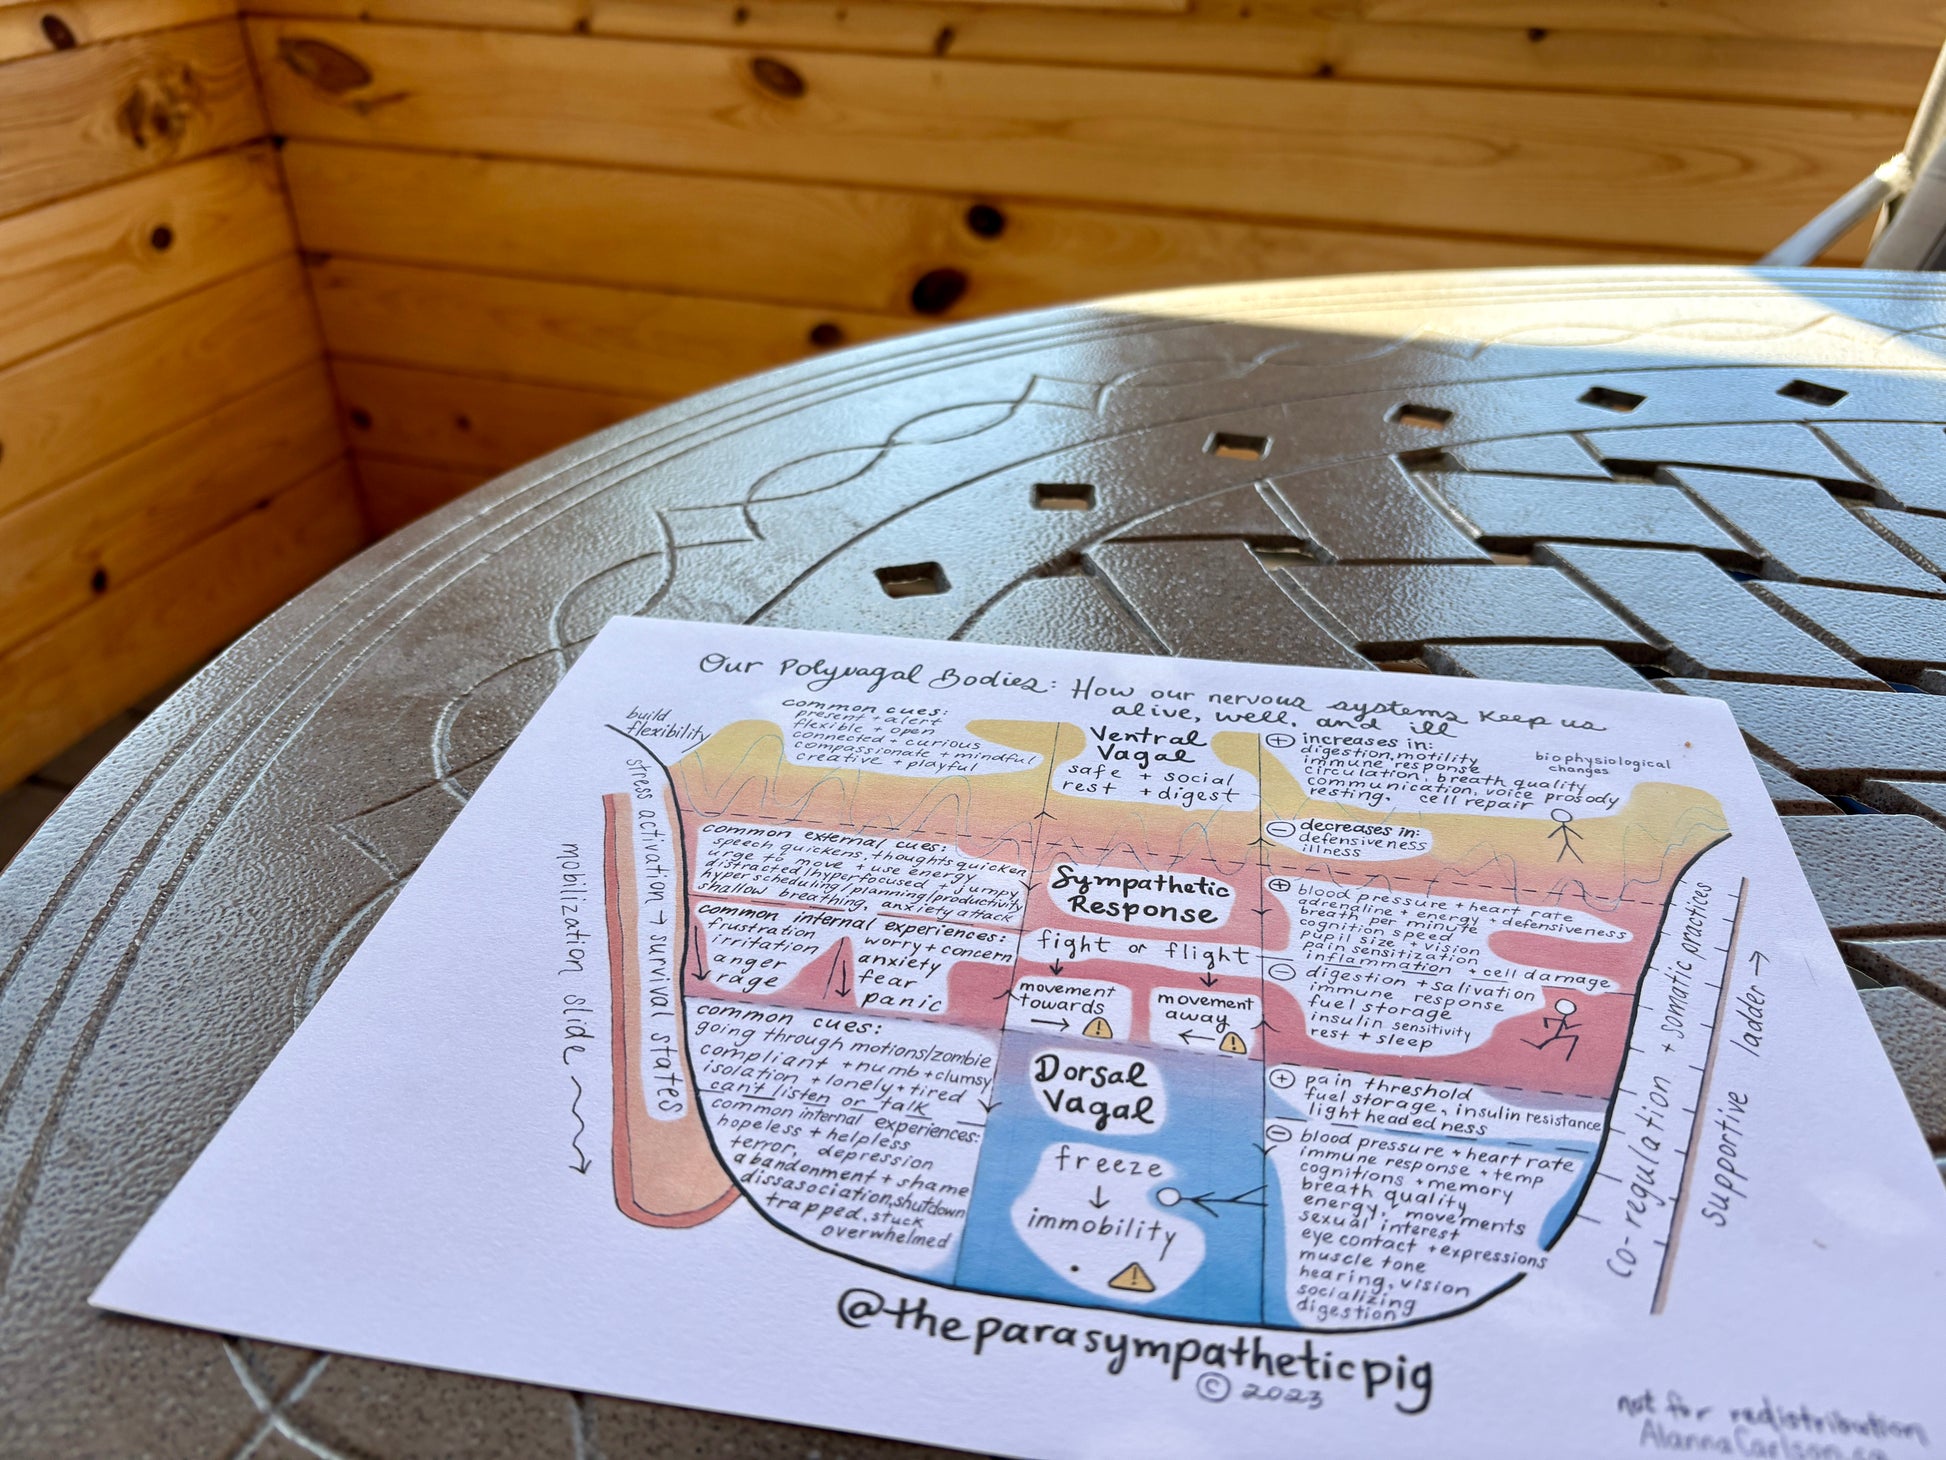 Our Polyvagal Bodies: How our nervous systems keep us
alive, well, and ill
build
flexibility
common cues:
present + alert
flexible + open
connected + curious
compassionate + mindful
creative + playful
Ventral
Vagal
safe + social
rest + digest
+ increases in:
digestion, motility
immune response
circulation, breath quality
communication, voice prosody
resting, cell repair
biophysiological
changes
- decreases in:
defensiveness
illness
stress activation → survival states
mobilization slide
common external cues:
speech quickens, thoughts quicken
urge to move + use energy
distracted/hyperfocused + jumpy
hyper scheduling/planning/productivity
shallow breathing, anxiety attack
common internal experiences:
frustration
irritation
anger
rage
worry + concern
anxiety
fear
panic
Sympathetic
Response
fight or flight
movement
towards
movement
away
+ blood pressure + heart rate
adrenaline + energy + defensiveness
breath per minute
cognition speed
pupil size + vision
pain sensitization
inflammation + cell damage
- digestion + salivation
immune response
fuel storage
insulin sensitivity
rest + sleep
common cues:
going through motions/zombie
compliant + numb + clumsy
isolation + lonely + tired
can't listen or talk
common internal experiences:
hopeless + helpless
terror, depression
abandonment + shame
dissasociation, shutdown
trapped, stuck
overwhelmed
Dorsal
Vagal
freeze
immobility
+ pain threshold
fuel storage, insulin resistance
lightheadedness
- blood pressure + heart rate
immune response + temp
cognitions + memory
breath quality
energy, + movements
sexual interest
eye contact + expressions
muscle tone
hearing, vision
socializing
digestion
co-regulation + somatic practices
supportive ladder →
@theparasympatheticpig
© 2023
not for redistribution
AlannaCarlson.ca